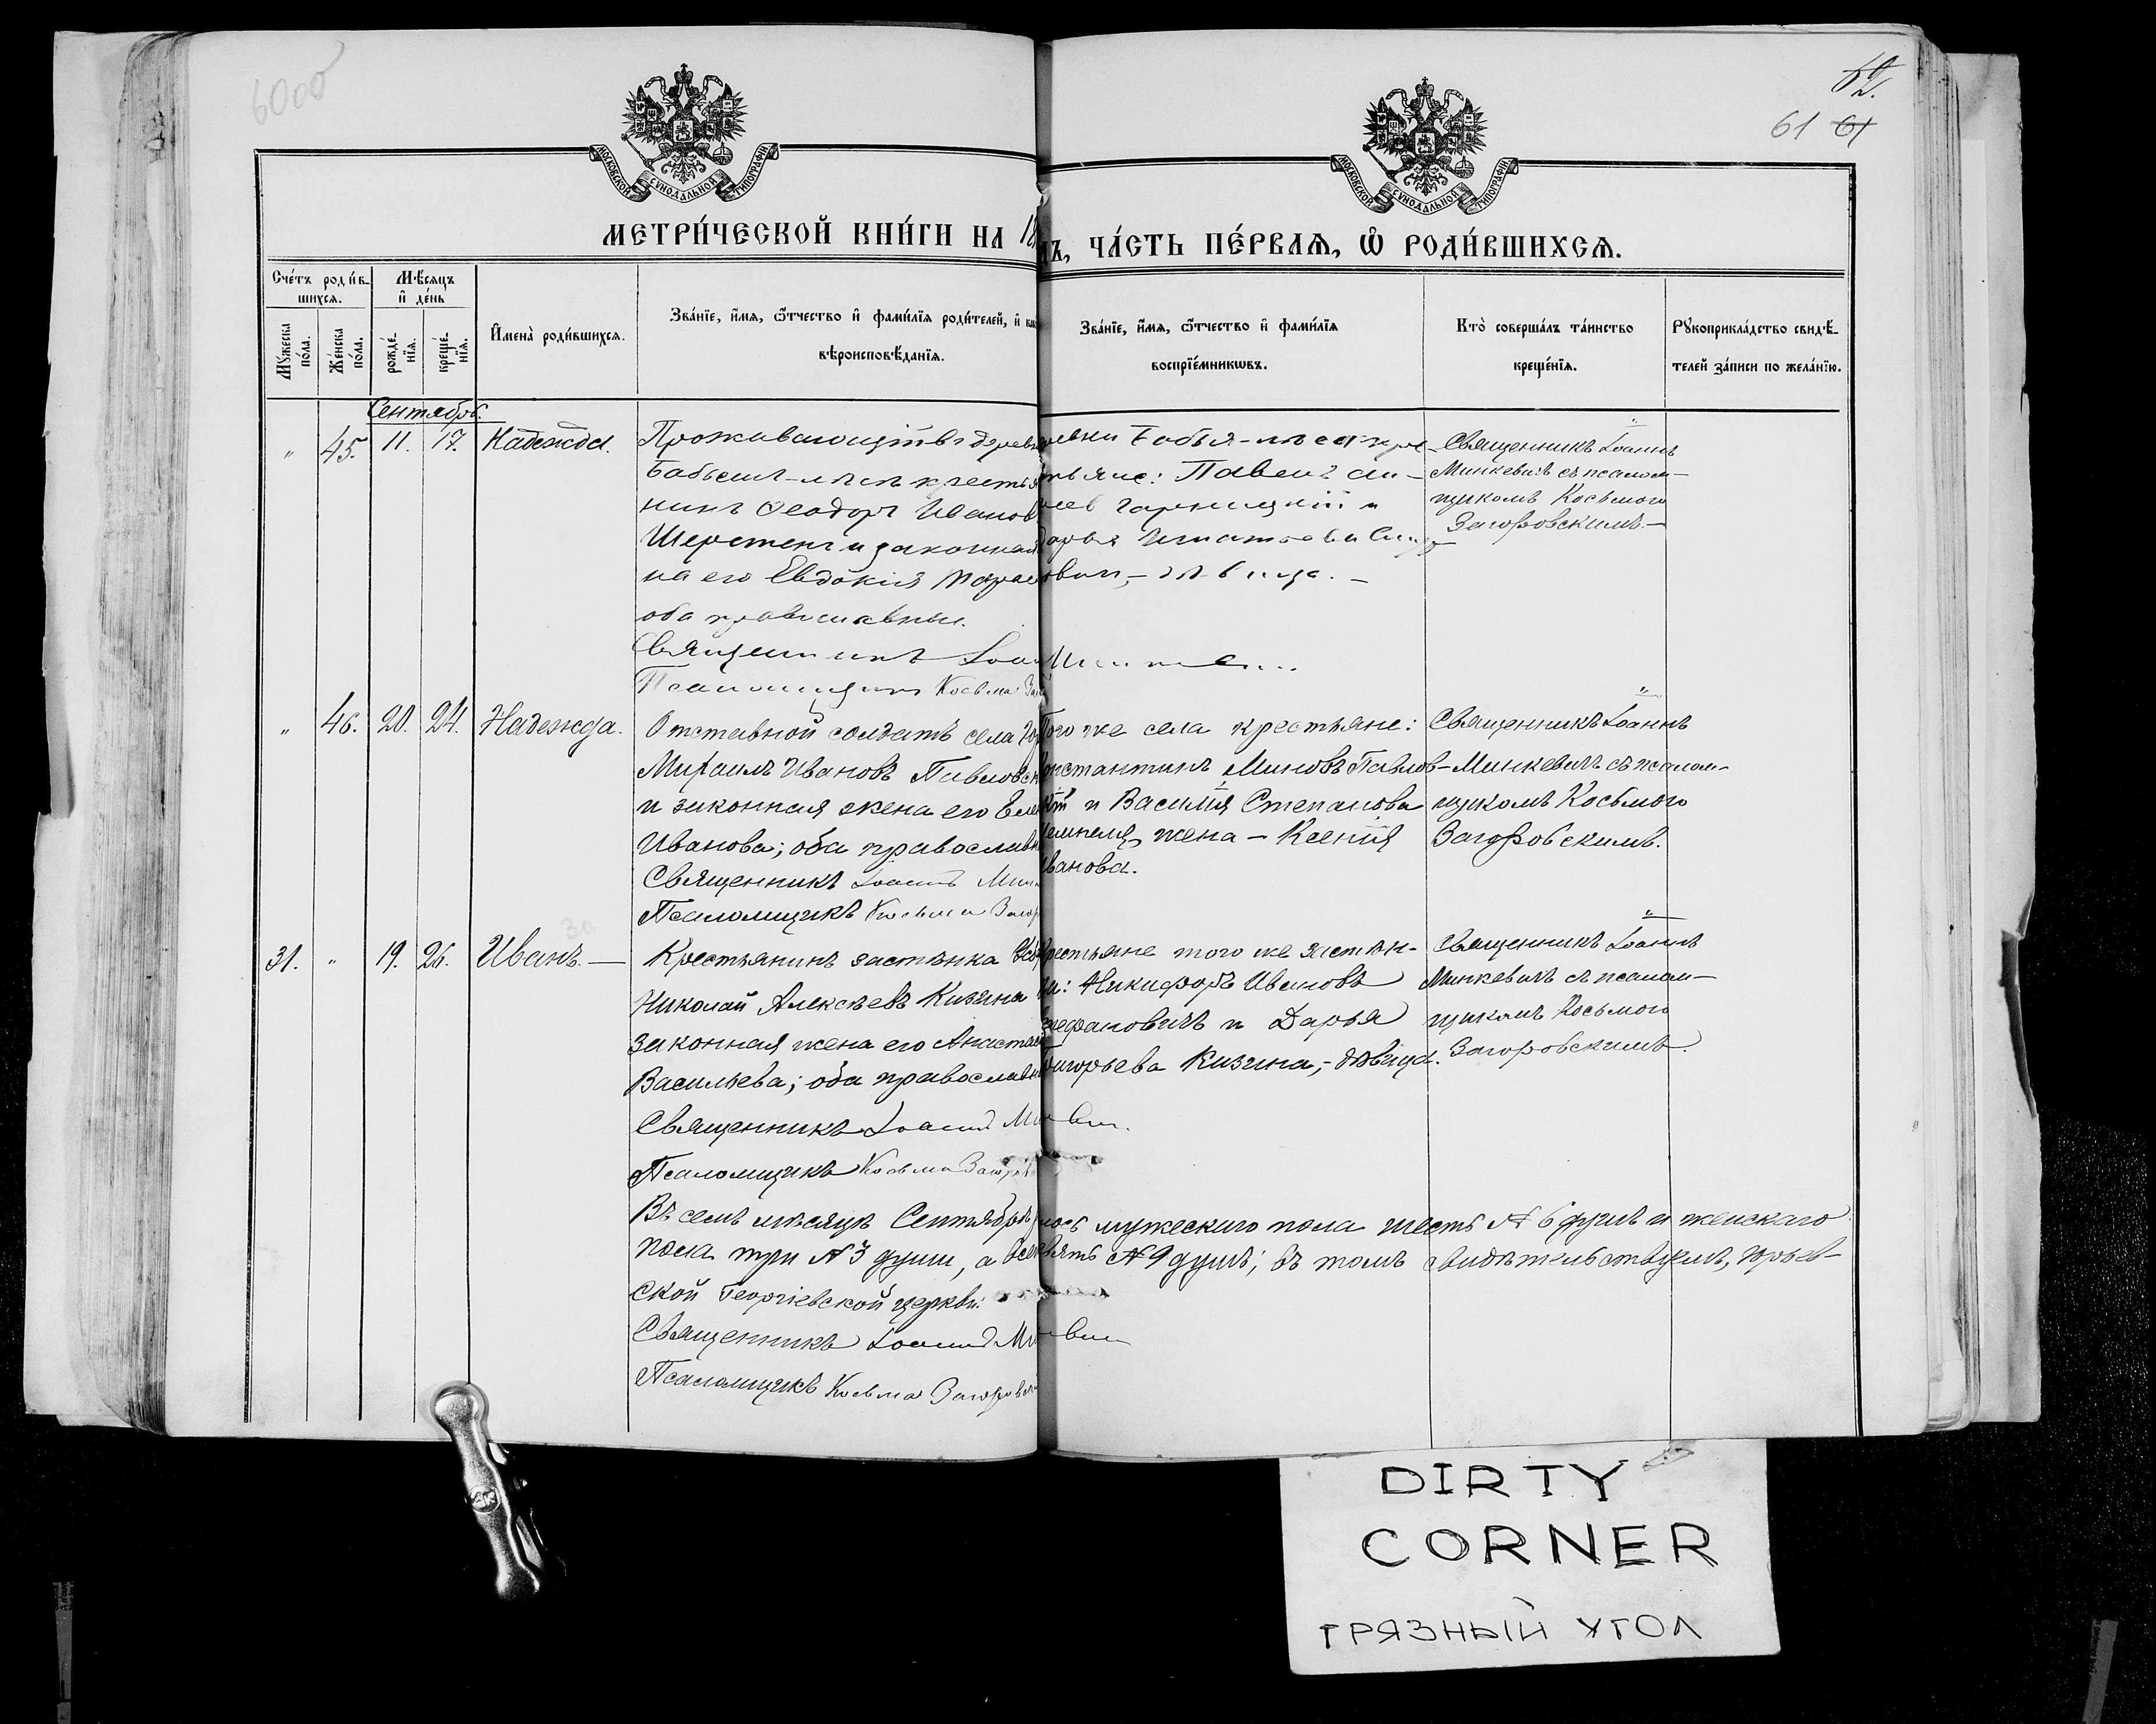 62.
61 61
МОСКОВСКОЙ СѴНОДАЛЬНОЙ ТИПОГРАФІИ
МОСКОВСКОЙ СѴНОДАЛЬНОЙ ТИПОГРАФІИ
МЕТРИ́ЧЕСКОЙ КНИ́ГИ НА 18
ЧА́СТЬ ПЕ́РВАЯ, Ѡ РОДИ́ВШИХСЯ.
Сче́тъ роди́в-
шихся.
Мѣ́сяцъ
и҆ де́нь
Мꙋ́жеска по́ла.
Же́нска по́ла.
рожде́-
нїя.
креще́-
нїя.
И҆мена̀ роди́вшихся.
Зва́нїе, и҆́мя, ѻ҆́тчество и҆ фами́лїя роди́телей, и҆
вѣроисповѣ́данїя.
Зва́нїе, и҆́мя, ѻ҆́тчество и҆ фами́лїя
воспрїе́мникѡвъ.
Кто̀ соверша́лъ та́инство
креще́нїя.
Рꙋкоприкла́дство свидѣ́-
телей за́писи по жела́нїю.
Сентябрь.
" 45. 11. 17. Надежда.
Проживающій въ дерев
Бабьемъ-лѣсѣ крестья
нинъ Ѳеодоръ Иванов
Шерстень и законная
на его Евдокія Тарас
оба православные.
Священникъ
Псаломщикъ Косьма
Бабья-лѣса кре-
стьяне: Павелъ
и
дѣвица.
Священникъ Іоаннъ
Минкевичъ съ псалом-
щикомъ Косьмою
Загоровскимъ.-
" 46. 20. 24. Надежда.
Отставной солдатъ села
Михаилъ Ивановъ Павлов
и законная жена его Еле
Иванова; оба православн
Священникъ Іоаннъ Мин
Псаломщикъ Косьма Загор
Того же села крестьяне:
онстантинъ Миновъ Павлов-
и Василія Степанова
жена - Ксенія
ванова.
Священникъ Іоаннъ
Минкевичъ съ псалом-
щикомъ Косьмою
Загоровскимъ.
31. " 19. 26. Иванъ.-
Крестьянинъ застѣнка
Николай Алексѣевъ Кизина
законная жена его Анастас
Васильева; оба православн
Священникъ Іоаннъ Ми
Псаломщикъ Косьма Загоров
рестьяне того же застѣн-
ка: Никифоръ Ивановъ
ефановичъ и Дарья
Григорьева Кизина,- дѣвица.
Священникъ Іоаннъ
Минкевичъ съ псалом-
щикомъ Косьмою
Загоровскимъ.
Въ семъ мѣсяцѣ Сентябрѣ лось мужескаго пола шесть № 6 душъ и женскаго
пола три № 3 души, а все вять № 9 душъ; въ томъ свидѣтельствуемъ, Юрьев-
ской Георгіевской церкви:
Священникъ Іоаннъ
Псаломщикъ Косьма Загоровск
DIRTY
CORNER
ГРЯЗНЫЙ УГОЛ